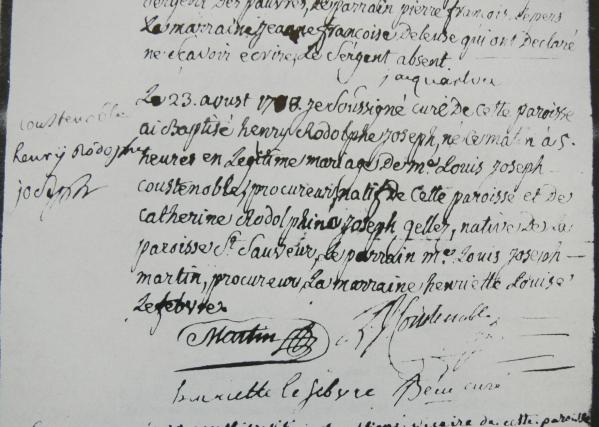 Sergent des pauvres, Le parrain pierre francois
La marraine jeanne francoise Deleuse qui ont Declaré
ne Scavoir ecrire, Le Sergent absent.
Le 23. avust 1708. je Soussigné curé de cette paroisse
ai Baptisé henry Rodolphe Joseph, ne ce matin à 5
heures en Legitime mariage de me. Louis Joseph
coustenoble, procureur, natif de cette paroisse et de
catherine Rodolphine joseph gellez, native de la
paroisse St. Sauveur, Le parrain me. Louis Joseph
martin, procureur, La marraine henriette Louise
Lefebvre
coustenoble
henry Rodophe
joseph
Martin
Coustenoble
henriette le febvre
curé
de cette paroisse